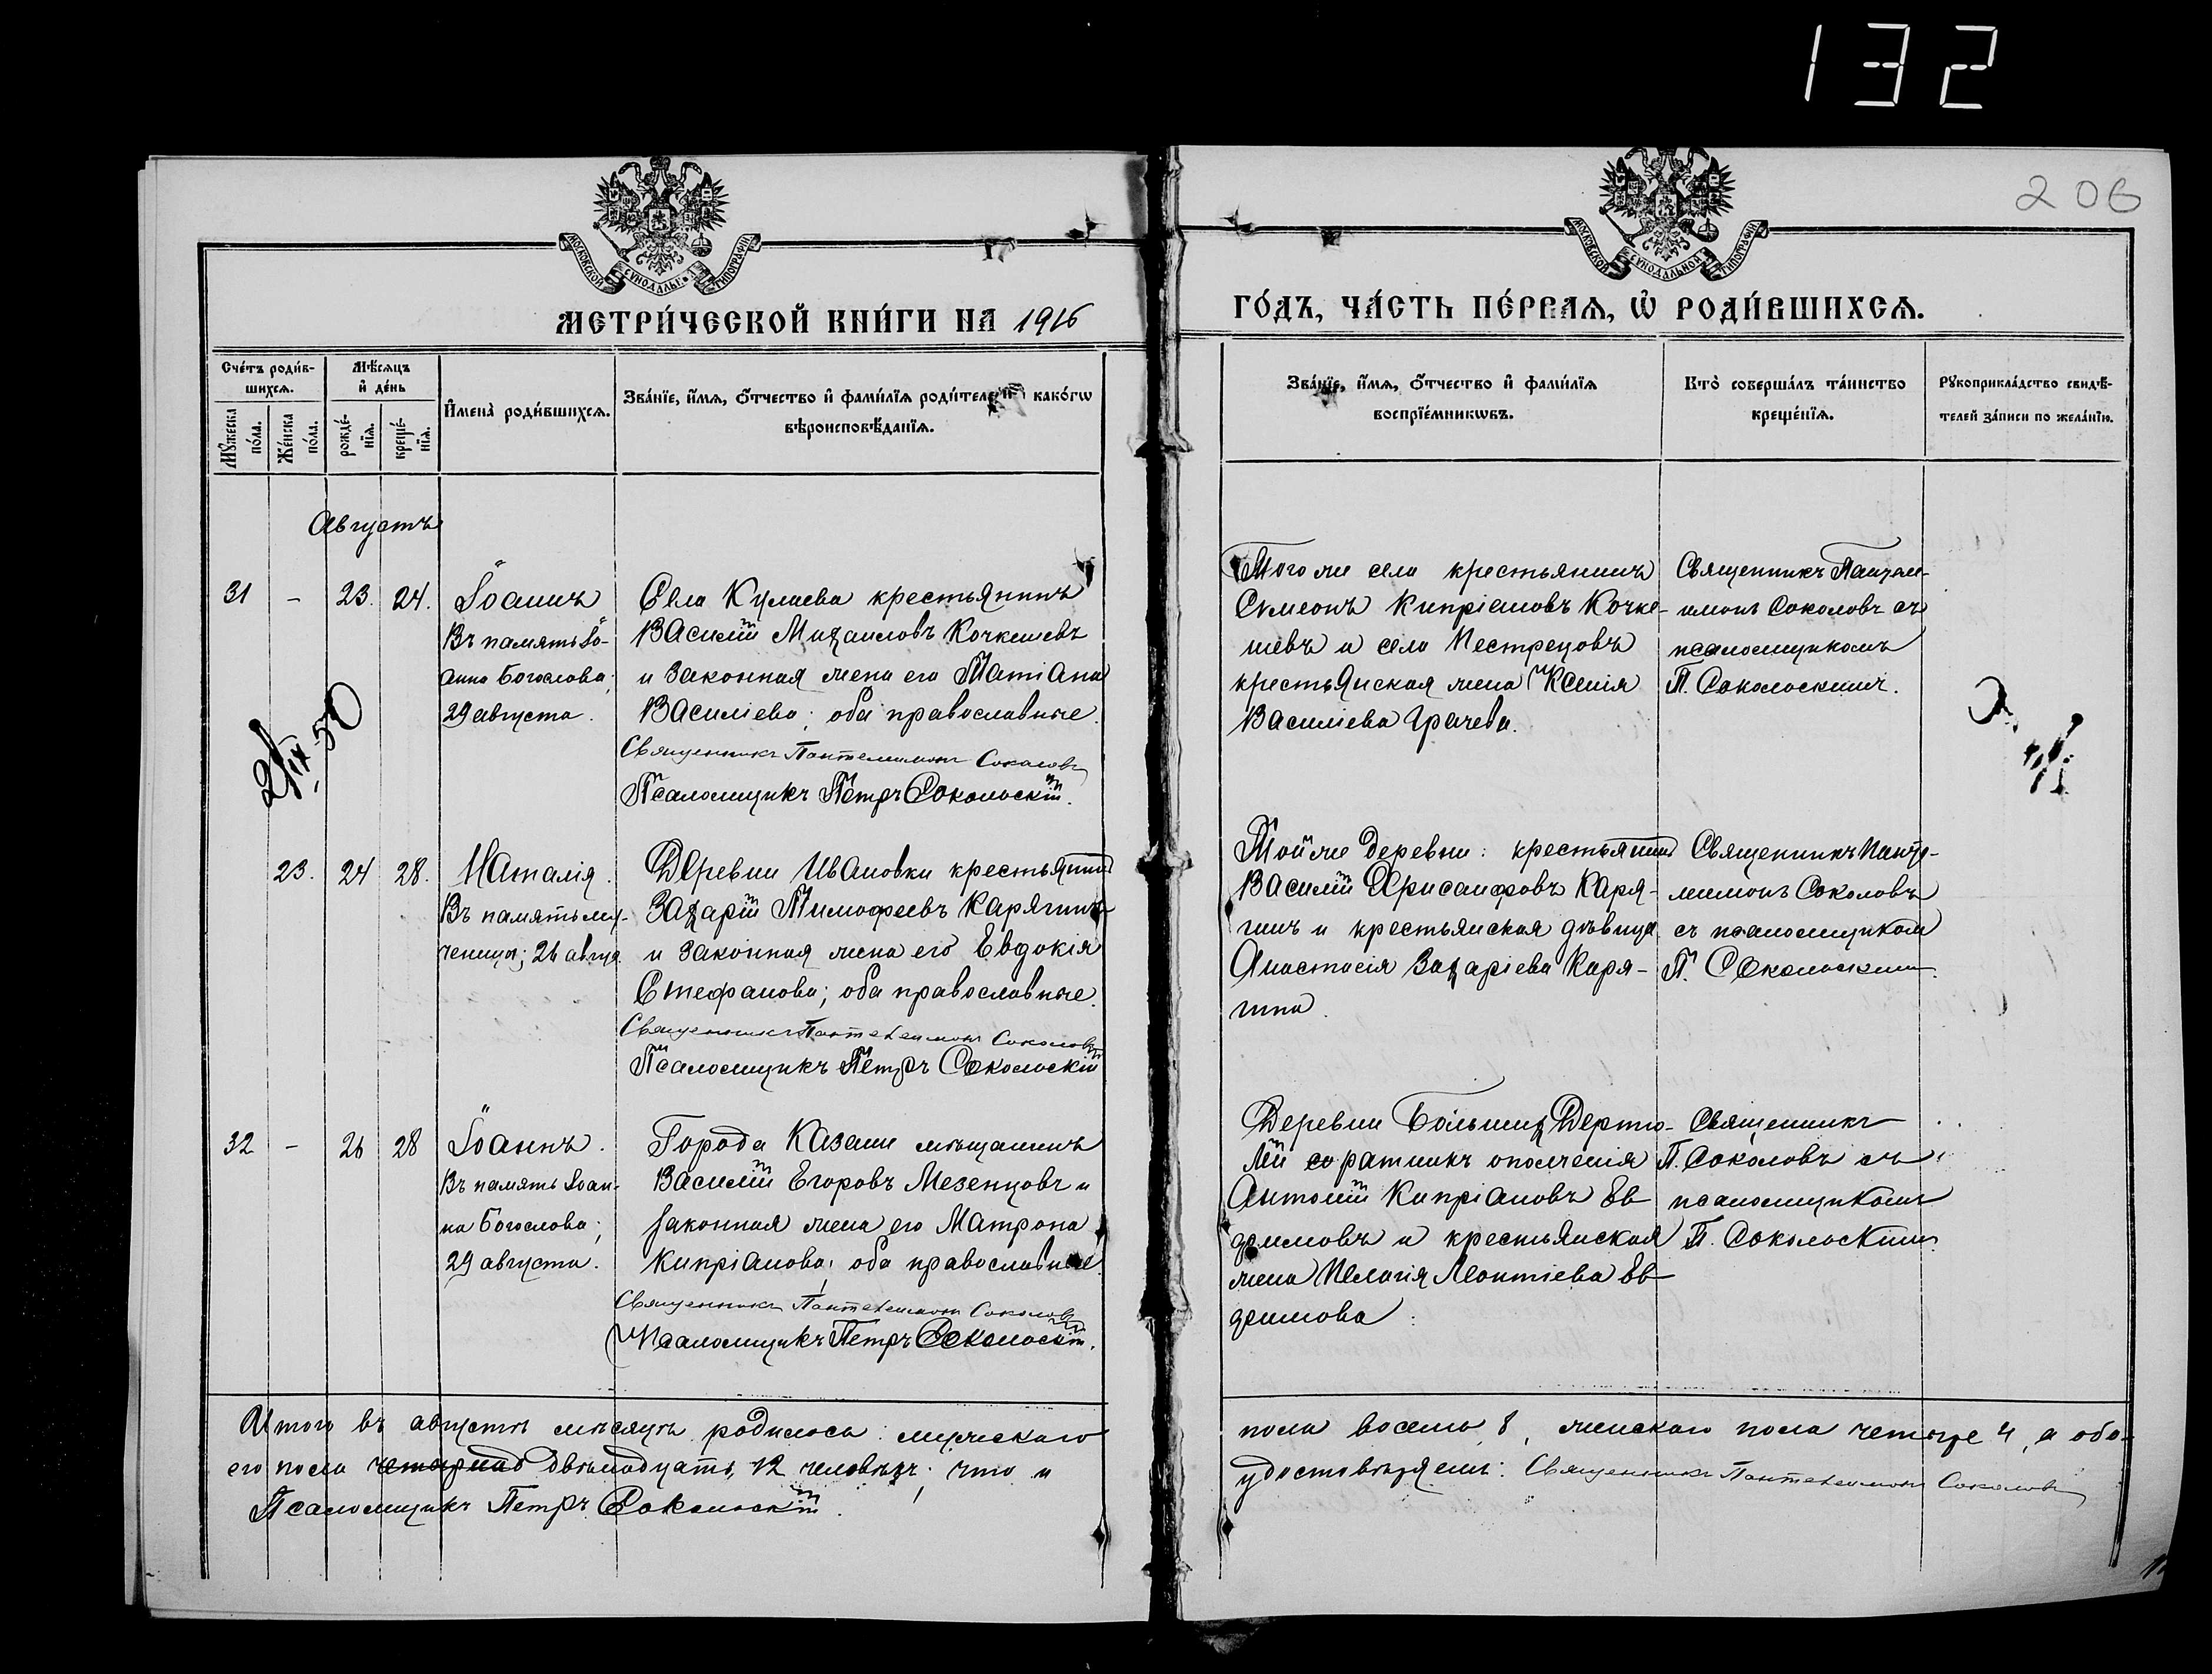 132
206
МОСКОВСКОЙ СѴНОДАЛЬНОЙ ТИПОГРАФІИ
МОСКОВСКОЙ СѴНОДАЛЬНОЙ ТИПОГРАФІИ
МЕТРИ́ЧЕСКОЙ КНИ́ГИ НА 1916
ГО́ДЪ, ЧА́СТЬ ПЕ́РВАѦ, Ѡ РОДИ́ВШИХСѦ.
Сче́тъ роди́в-
шихсѧ.
Мѣ́сѧцъ
и҆ де́нь
Мꙋ́жеска
по́ла.
Же́нска
по́ла.
рожде́-
нїѧ.
креще́-
нїѧ.
И҆мена̀ роди́вшихсѧ.
Зва́нїе, и҆́мѧ, ѻ҆́тчество и҆ фами́лїѧ роди́телей и҆ како́гѡ
вѣроисповѣ́данїѧ.
Зва́нїе, и҆́мѧ, ѻ҆́тчество и҆ фами́лїѧ
воспрїе́мникѡвъ.
Кто̀ соверша́лъ та́инство
креще́нїѧ.
Рꙋкоприкла́дство свидѣ́-
телей за́писи по жела́нїю.
Августъ
31 – 23. 24.
Іоаннъ
Въ память Іо-
анна Богослова;
29 августа.
Села Кулаева крестьянинъ
Василій Михаиловъ Кочкешевъ
и законная жена его Татіана
Василіева; оба православные.
Священникъ Пантелеимонъ Соколовъ
Псаломщикъ Петръ Сокольскій.
Того же села крестьянинъ
Симеонъ Кипріановъ Кочке-
шевъ и села Пестрецовъ
крестьянская жена Ксенія
Василіева Грачева.
Священникъ Панте-
лимонъ Соколовъ съ
псаломщикомъ
П. Сокольскимъ.
23. 24 28.
Наталія.
Въ память му-
ченицы; 26 авгус.
Деревни Ивановки крестьянинъ
Захарій Тимофеевъ Карягинъ
и законная жена его Евдокія
Стефанова; оба православные.
Священникъ Пантелеимонъ Соколовъ
Псаломщикъ Петръ Сокольскій
Той же деревни: крестьянинъ
Василій Хрисанфовъ Каря-
гинъ и крестьянская дѣвица
Анастасія Захаріева Каря-
гина.
Священникъ Панте-
леимонъ Соколовъ
съ псаломщикомъ
П. Сокольскимъ.
32 – 26 28
Іоаннъ.
Въ память Іоан-
на Богослова;
29 августа.
Города Казани мѣщанинъ
Василій Егоровъ Мезенцовъ и
законная жена его Матрона
Кипріанова; оба православные.
Священникъ Пантелеимонъ Соколовъ
Псаломщикъ Петръ Сокольскій.
Деревни Большихъ Дертю-
лей ратникъ ополченія
Антоній Кипріановъ Ев-
докимовъ и крестьянская
жена Пелагія Леонтіева Ев-
докимова.
Священникъ
П. Соколовъ съ
псаломщикомъ
П. Сокольскимъ.
Итого въ августѣ мѣсяцѣ родилось: мужскаго
пола восемь 8, женскаго пола четыре 4, а обо-
его пола двѣнадцать, 12 человѣкъ; что и
удостовѣряемъ: Священникъ Пантелеимонъ Соколовъ
Псаломщикъ Петръ Сокольскій.